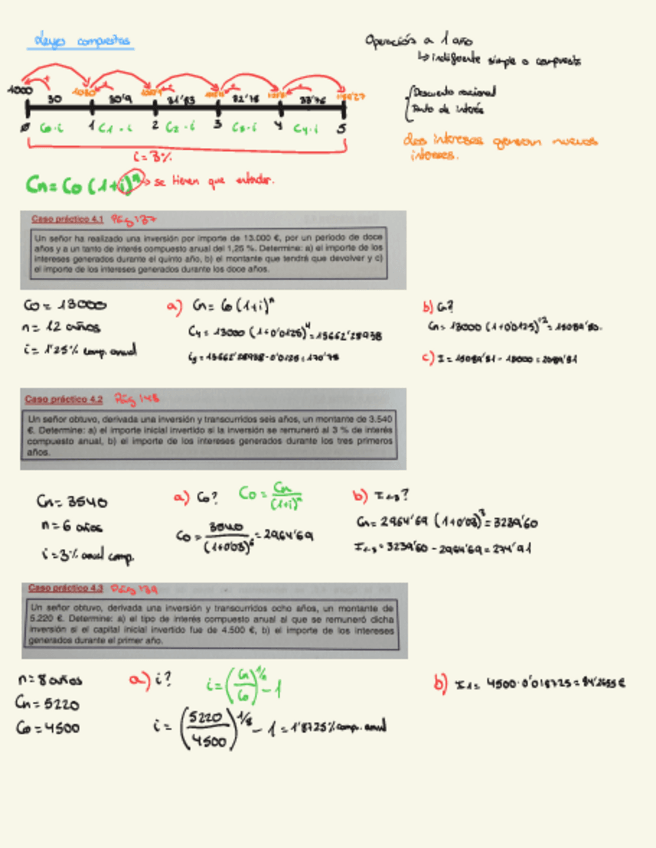 Leyes compuestas
Operación a 1 año
↳ indiferente simple o compuesta
1000
30 30'9 31'83 32'78 33'76
C0·i C1·i C2·i C3·i C4·i
0 1 2 3 4 5
i = 3%
Descuento racional
Tanto de interés
Los intereses generan nuevos
intereses.
Cn = C0 (1+i)^n → se tienen que entender.
Caso práctico 4.1 Pág 137
Un señor ha realizado una inversión por importe de 13.000 €, por un periodo de doce
años y a un tanto de interés compuesto anual del 1,25 %. Determine: a) el importe de los
intereses generados durante el quinto año, b) el montante que tendrá que devolver y c)
el importe de los intereses generados durante los doce años.
C0 = 13000
n = 12 años
i = 1'25% comp. anual
a) Cn = C0 (1+i)^n
C4 = 13000 (1+0'0125)^4 = 13662'28938
I5 = 13662'28938 · 0'0125 = 170'78
b) Cn?
Cn = 13000 (1+0'0125)^12 = 15089'80.
c) I = 15089'81 - 13000 = 2089'81
Caso práctico 4.2 Pág 148
Un señor obtuvo, derivada una inversión y transcurridos seis años, un montante de 3.540
€. Determine: a) el importe inicial invertido si la inversión se remuneró al 3 % de interés
compuesto anual, b) el importe de los intereses generados durante los tres primeros
años.
Cn = 3540
n = 6 años
i = 3% anual comp.
a) C0? C0 = Cn / (1+i)^n
C0 = 3540 / (1+0'03)^6 = 2964'69
b) I1-3?
Cn = 2964'69 (1+0'03)^3 = 3239'60
I1-3 = 3239'60 - 2964'69 = 274'91
Caso práctico 4.3 Pág 139
Un señor obtuvo, derivada una inversión y transcurridos ocho años, un montante de
5.220 €. Determine: a) el tipo de interés compuesto anual al que se remuneró dicha
inversión si el capital inicial invertido fue de 4.500 €, b) el importe de los intereses
generados durante el primer año.
n = 8 años
Cn = 5220
C0 = 4500
a) i? i = (Cn / C0)^1/n - 1
i = (5220 / 4500)^1/8 - 1 = 1'8725% comp. anual
b) I1 = 4500 · 0'018725 = 84'2655 €